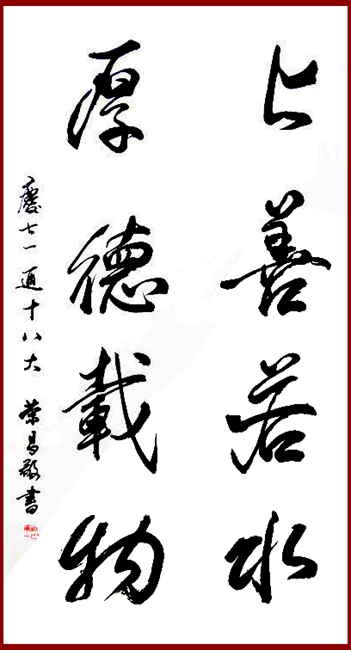 上善若水
厚德載物
慶七一 迎十八大 荣昌敬書